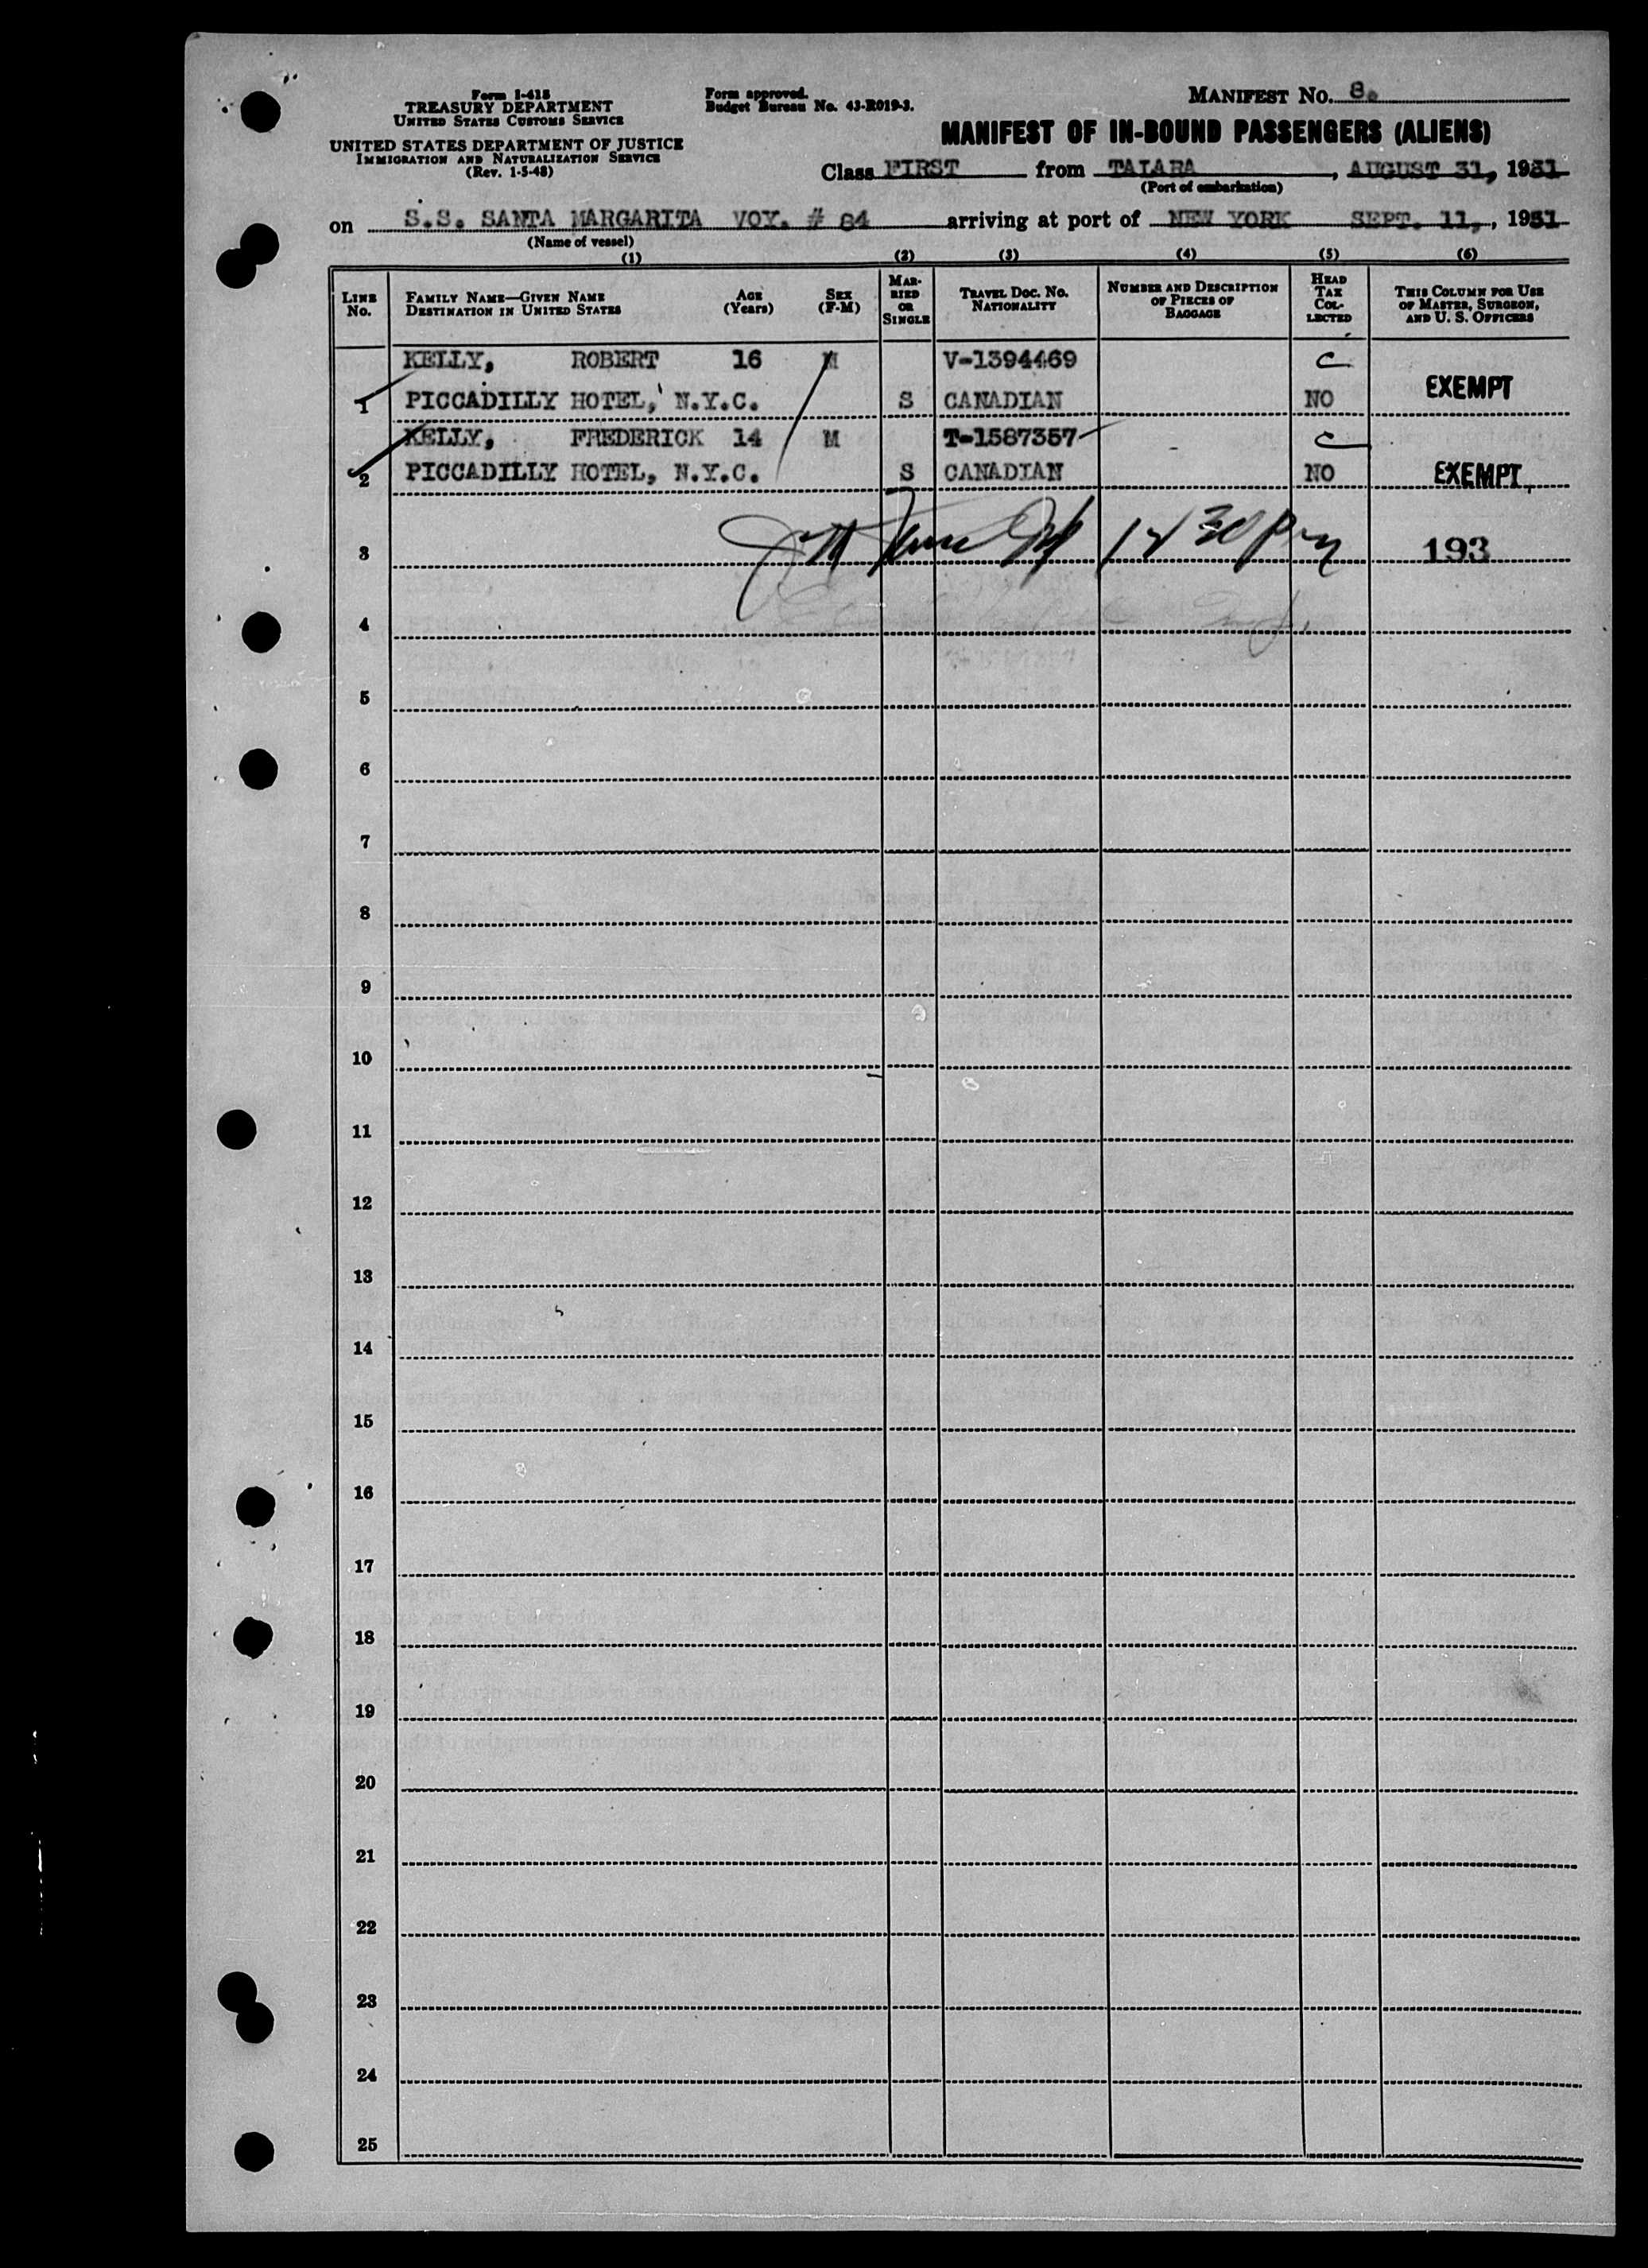 Form I-418
TREASURY DEPARTMENT
UNITED STATES CUSTOMS SERVICE
UNITED STATES DEPARTMENT OF JUSTICE
IMMIGRATION AND NATURALIZATION SERVICE
(Rev. 1-5-48)
Form approved.
Budget Bureau No. 43-R019-3.
MANIFEST No. 8.
MANIFEST OF IN-BOUND PASSENGERS (ALIENS)
Class FIRST from TALARA, AUGUST 31, 1951
(Port of embarkation)
on S.S. SANTA MARGARITA VOY. # 84 arriving at port of NEW YORK SEPT. 11, 1951
(Name of vessel)
(1) (2) (3) (4) (5) (6)
LINE No. FAMILY NAME—GIVEN NAME DESTINATION IN UNITED STATES AGE (Years) SEX (F-M) MARRIED OR SINGLE TRAVEL DOC. NO. NATIONALITY NUMBER AND DESCRIPTION OF PIECES OF BAGGAGE HEAD TAX COLLECTED THIS COLUMN FOR USE OF MASTER, SURGEON, AND U. S. OFFICERS
KELLY, ROBERT 16 M V-1394469 C
1 PICCADILLY HOTEL, N.Y.C. S CANADIAN NO EXEMPT
KELLY, FREDERICK 14 M T-1587357 C
2 PICCADILLY HOTEL, N.Y.C. S CANADIAN NO EXEMPT
3 193
4
5
6
7
8
9
10
11
12
13
14
15
16
17
18
19
20
21
22
23
24
25